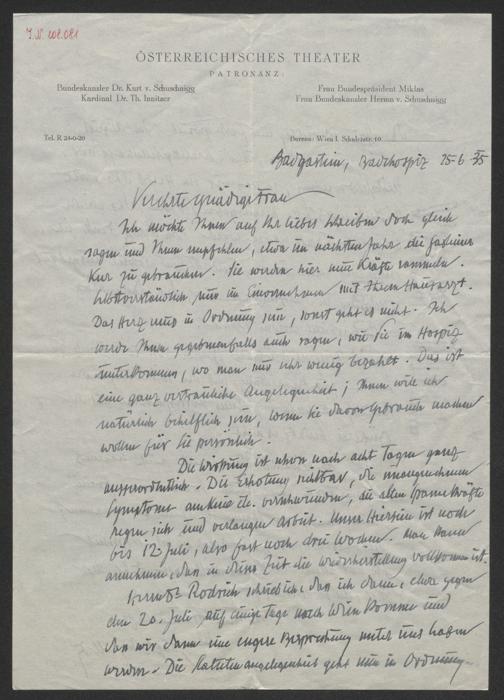 J.N. 202.081
ÖSTERREICHISCHES THEATER
PATRONANZ:
Bundeskanzler Dr. Kurt v. Schuschnigg
Kardinal Dr. Th. Innitzer
Frau Bundespräsident Miklas
Frau Bundeskanzler Herma v. Schuschnigg
Tel. R 24-0-20
Bureau: Wien I. Schulerstr. 10
Badgastein, Badehospiz 25-6-35
Verehrte gnädige Frau
Ich möchte Ihnen auf Ihr liebes Schreiben doch gleich
sagen und Ihnen empfehlen, etwa im nächsten Jahr die Gasteiner
Kur zu gebrauchen. Sie werden hier neue Kräfte sammeln.
Selbstverständlich nur im Einvernehmen mit Ihrem Hausarzt.
Das Herz muss in Ordnung sein, sonst geht es nicht. Ich
werde Ihnen gegebenenfalls auch sagen, wie Sie im Hospiz
unterkommen, wo man nur sehr wenig bezahlt. Das ist
eine ganz vertrauliche Angelegenheit; Ihnen will ich
natürlich behilflich sein, wenn Sie davon Gebrauch machen
wollen für Sie persönlich.
Die Wirkung ist schon nach acht Tagen ganz
ausserordentlich. Die Erholung sichtbar, die unangenehmen
Symptome verschwinden, die alten Kräfte
regen sich und verlangen Arbeit. Unser Hiersein ist noch
bis 12. Juli, also fast noch drei Wochen. Man kann
annehmen, dass in dieser Zeit die Wiederherstellung vollkommen ist.
Rodrich schrieb ich, das ich dann, etwa gegen
den 20. Juli, auf einige Tage nach Wien komme und
das wir dann eine engere Besprechung unter uns haben
werden. Die Statutenangelegenheit geht nun in Ordnung.